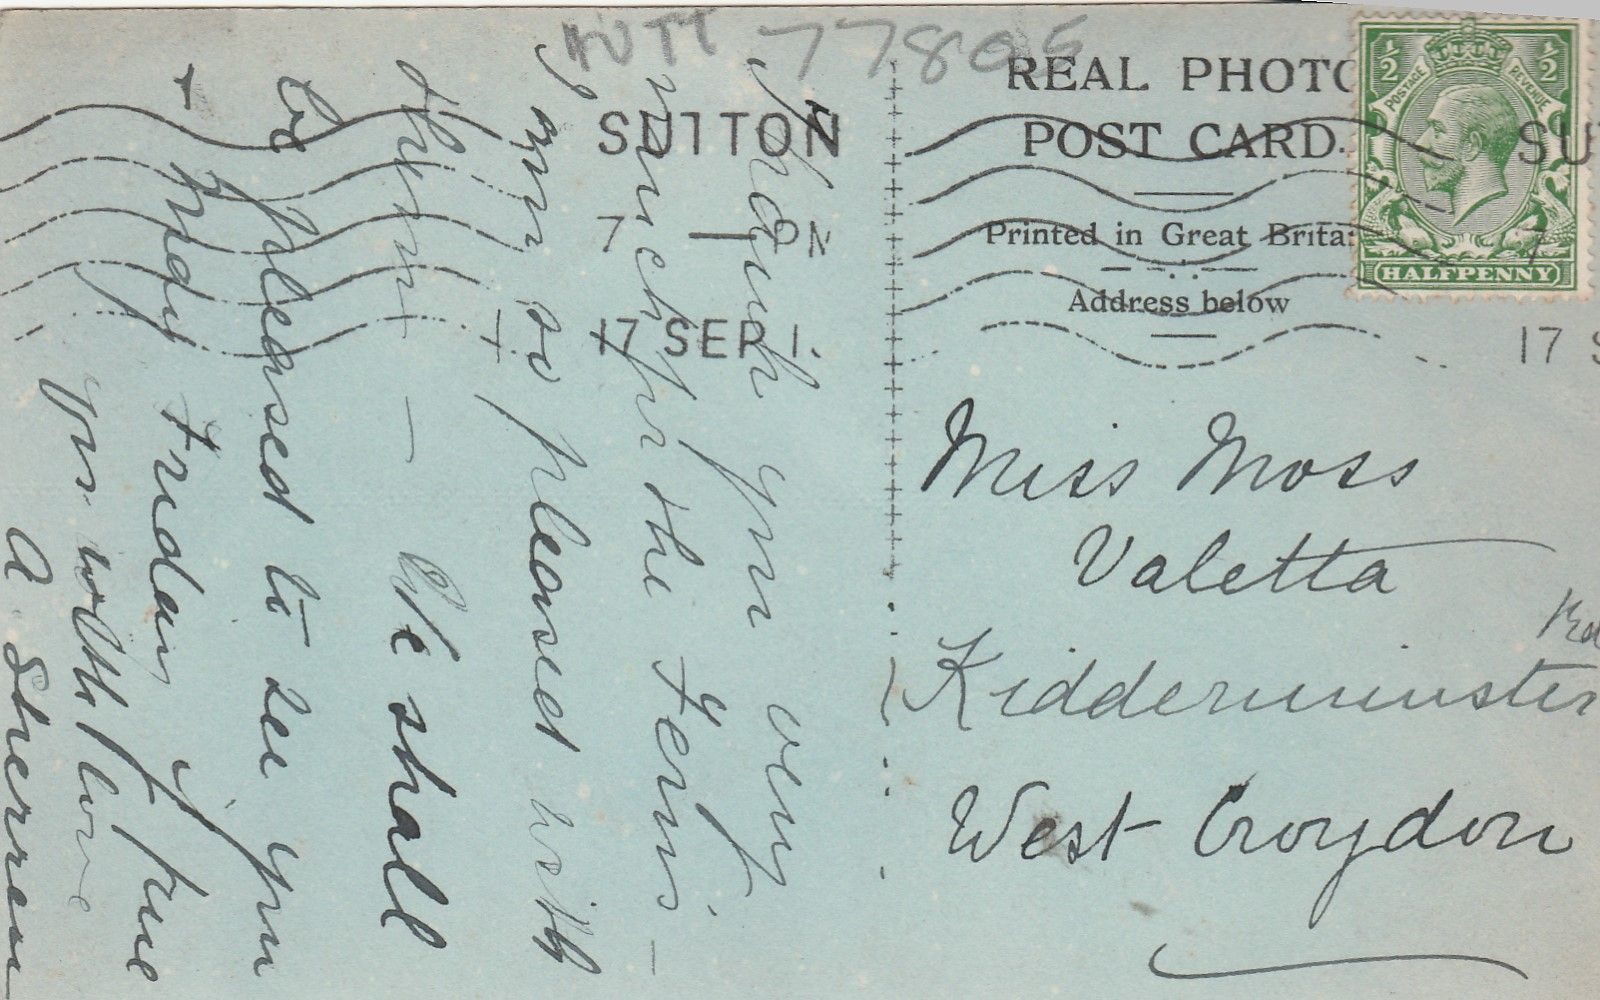 HUTT 77806
REAL PHOTO
POST CARD.
Printed in Great Britai
Address below
POSTAGE REVENUE
1/2 1/2
HALFPENNY
SUTTON
7
17 SEP 1
SU
7
17 S
Thank you very
much for the Ferns -
I am so pleased with
them - We shall
be pleased to see you
+ Judy Friday, if fine
you with love
A. Sherren
Miss Moss
Valetta
Kidderminster Rd
West Croydon